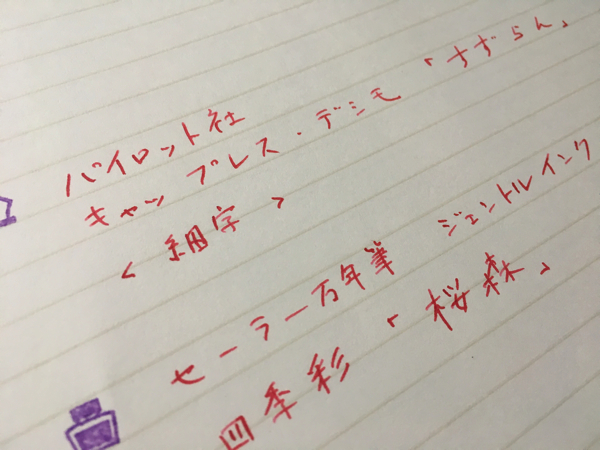 パイロット社
キャップレス・デシモ「すずらん」
<細字>
セーラー万年筆 ジェントルインク
四季彩「桜森」